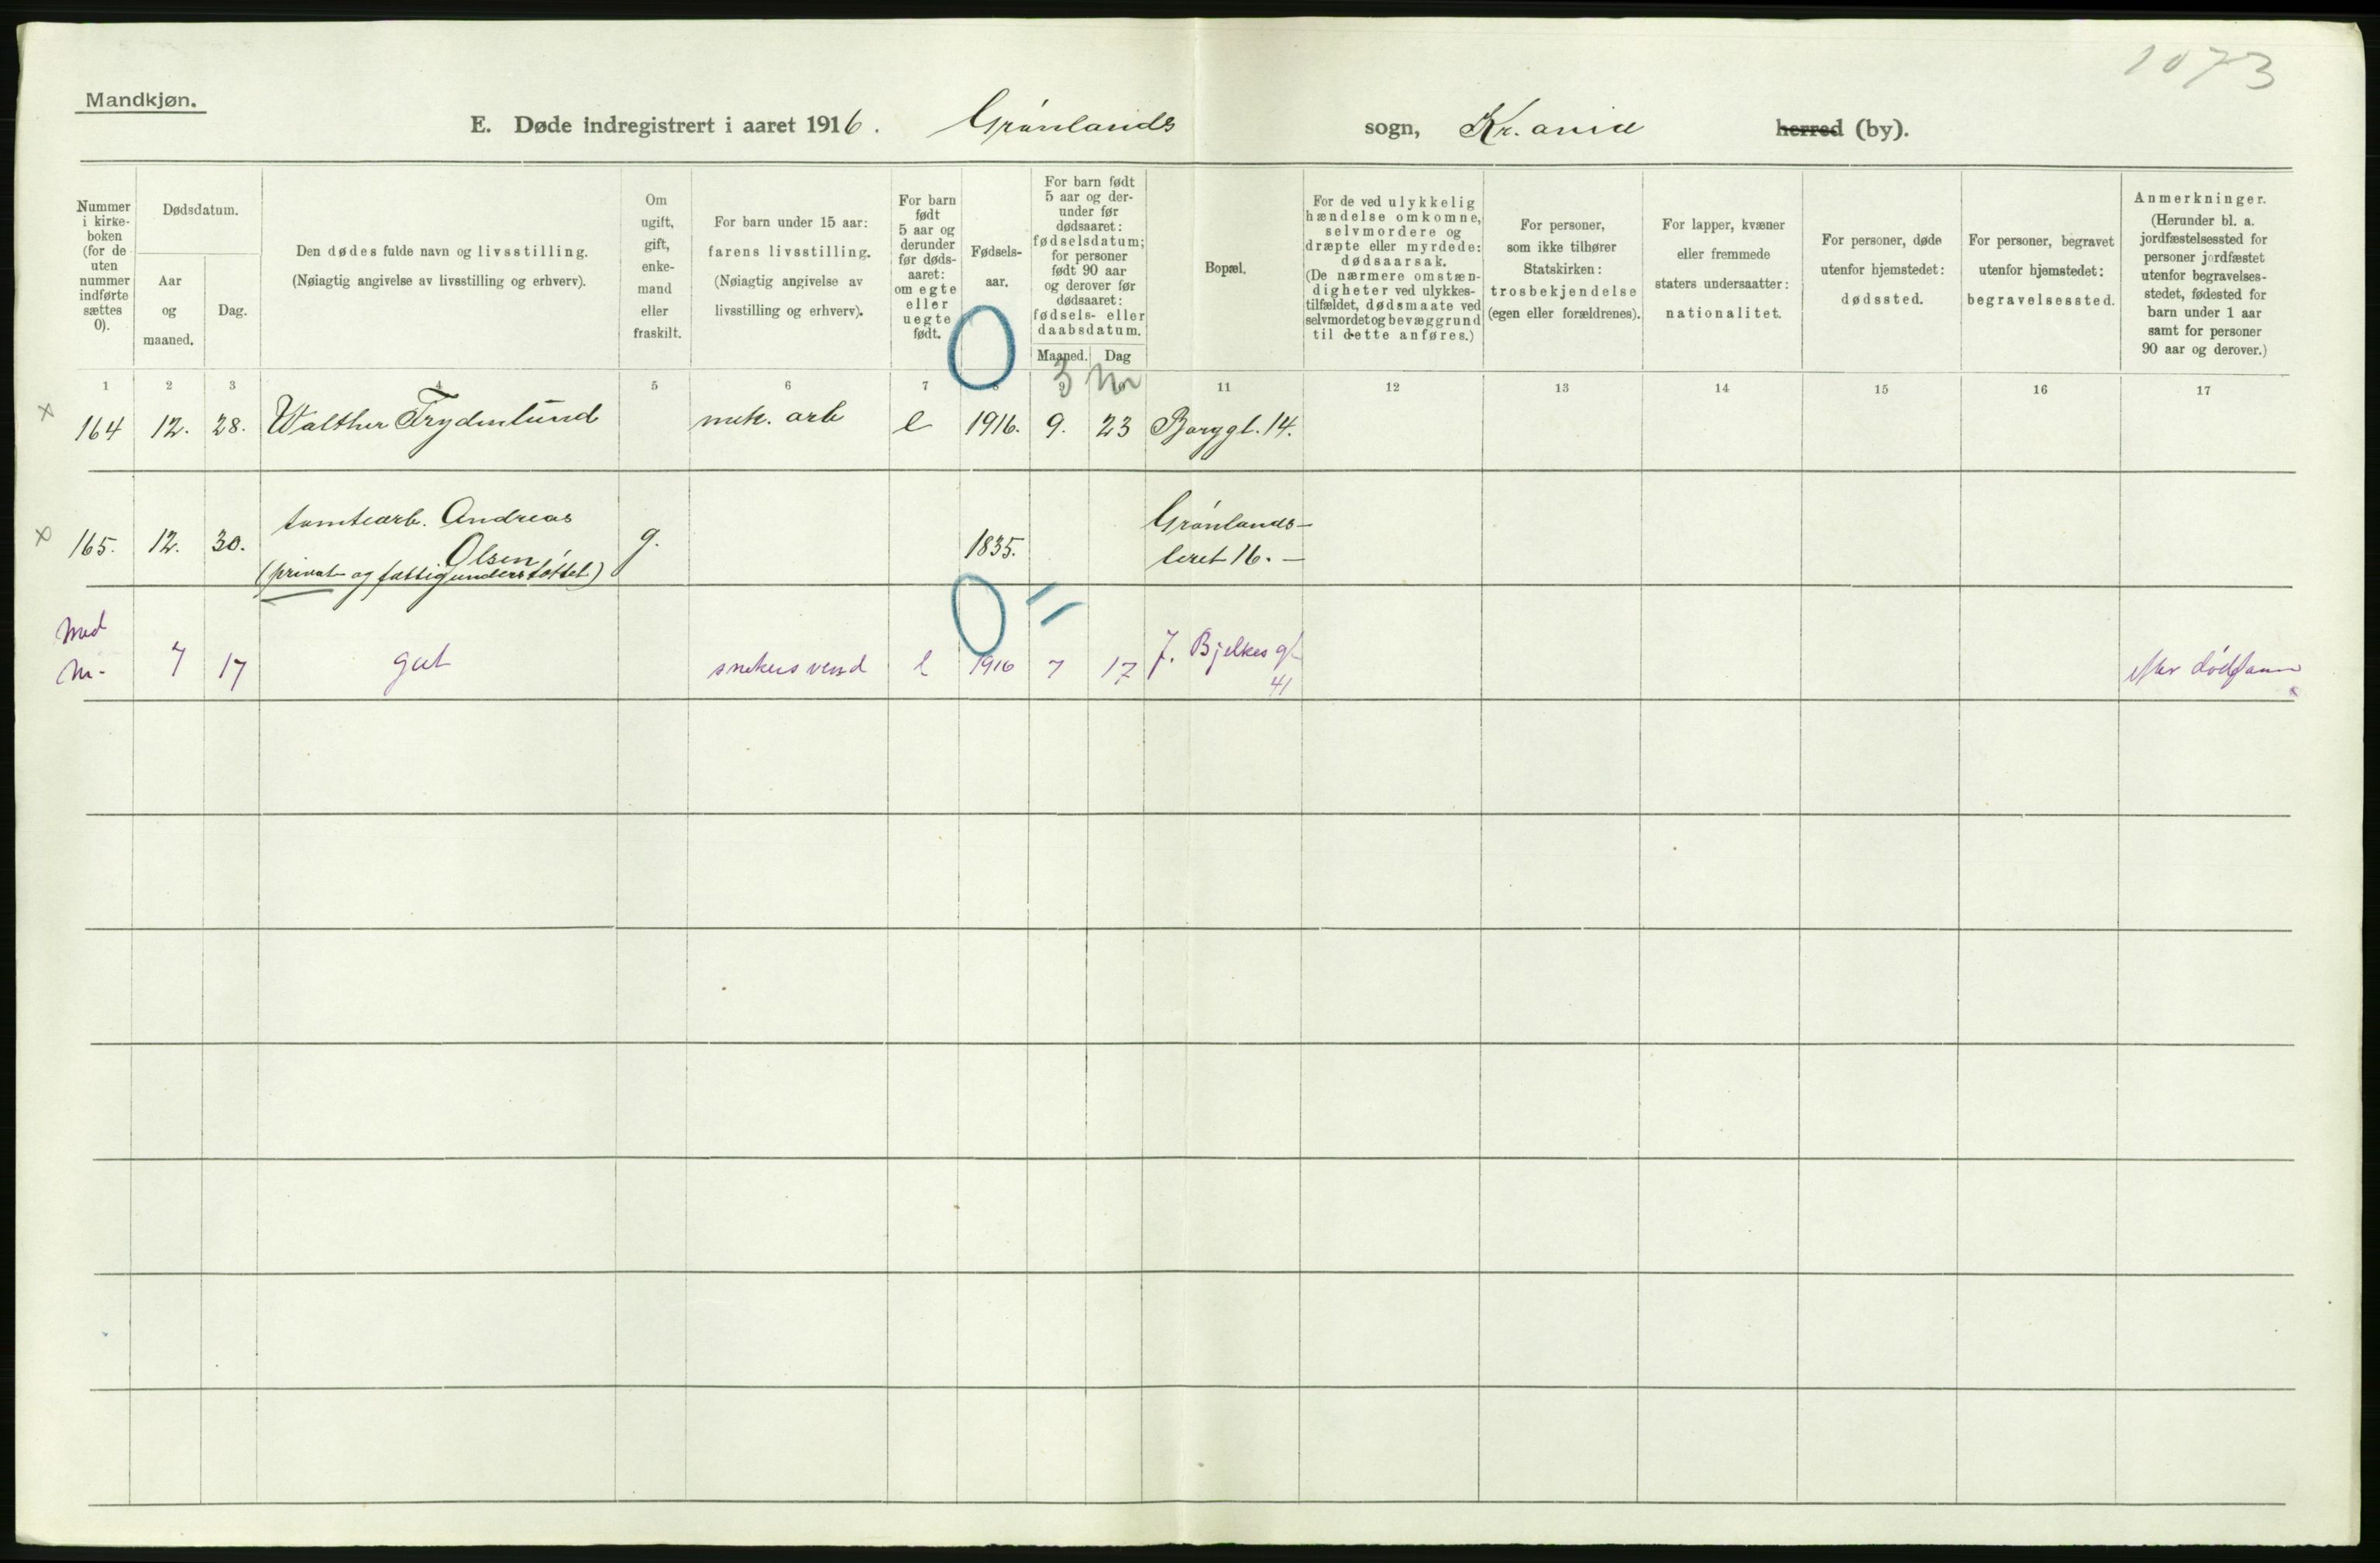 1073
Mandkjøn.
E. Døde indregistrert i aaret 1916. Grønlands sogn, Kr.ania herred (by).
Nummer
i kirke-
boken
(for de
uten
nummer
indførte
sættes
0).
Dødsdatum.
Aar
og
maaned.
Dag.
Den dødes fulde navn og livsstilling.
(Nøiagtig angivelse av livsstilling og erhverv).
Om
ugift,
gift,
enke-
mand
eller
fraskilt.
For barn under 15 aar:
farens livsstilling.
(Nøiagtig angivelse av
livsstilling og erhverv).
For barn
født
5 aar og
derunder
før døds-
aaret:
om egte
eller
uegte
født.
Fødsels-
aar.
For barn født
5 aar og der-
under før
dødsaaret:
fødselsdatum;
for personer
født 90 aar
og derover før
dødsaaret:
fødsels- eller
daabsdatum.
Maaned. Dag
Bopæl.
For de ved ulykkelig
hændelse omkomne,
selvmordere og
dræpte eller myrdede:
dødsaarsak.
(De nærmere omstæn-
digheter ved ulykkes-
tilfældet, dødsmaate ved
selvmordet og bevæggrund
til dette anføres.)
For personer,
som ikke tilhører
Statskirken:
trosbekjendelse
(egen eller forældrenes).
For lapper, kvæner
eller fremmede
staters undersaatter:
nationalitet.
For personer, døde
utenfor hjemstedet:
dødssted.
For personer, begravet
utenfor hjemstedet:
begravelsessted.
Anmerkninger.
(Herunder bl. a.
jordfæstelsessted for
personer jordfæstet
utenfor begravelses-
stedet, fødested for
barn under 1 aar
samt for personer
90 aar og derover.)
1 2 3 4 5 6 7 8 9 11 12 13 14 15 16 17
0 3 m
x 164 12. 28. Walther Frydenlund mek. arb e 1916. 9. 23 Borggt. 14.
x 165. 12. 30. tomtearb. Andreas
Olsen
(privat og fattigunderstøttet) g. 1835. Grønlands-
leret 16. -
0 =
Med
m. 7 17 gut snekersvend e 1916 7 17 J. Bjelkes gt
41